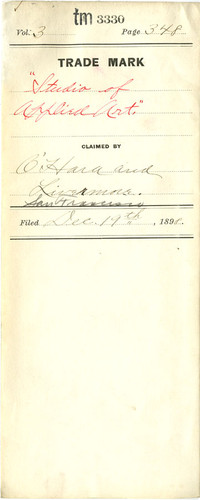 tm 3330
Vol. 3 Page 348
TRADE MARK
"Studio of
Applied Art."
CLAIMED BY
O'Hara and
Livermore.
San Francisco
Filed Dec. 19th, 1898.